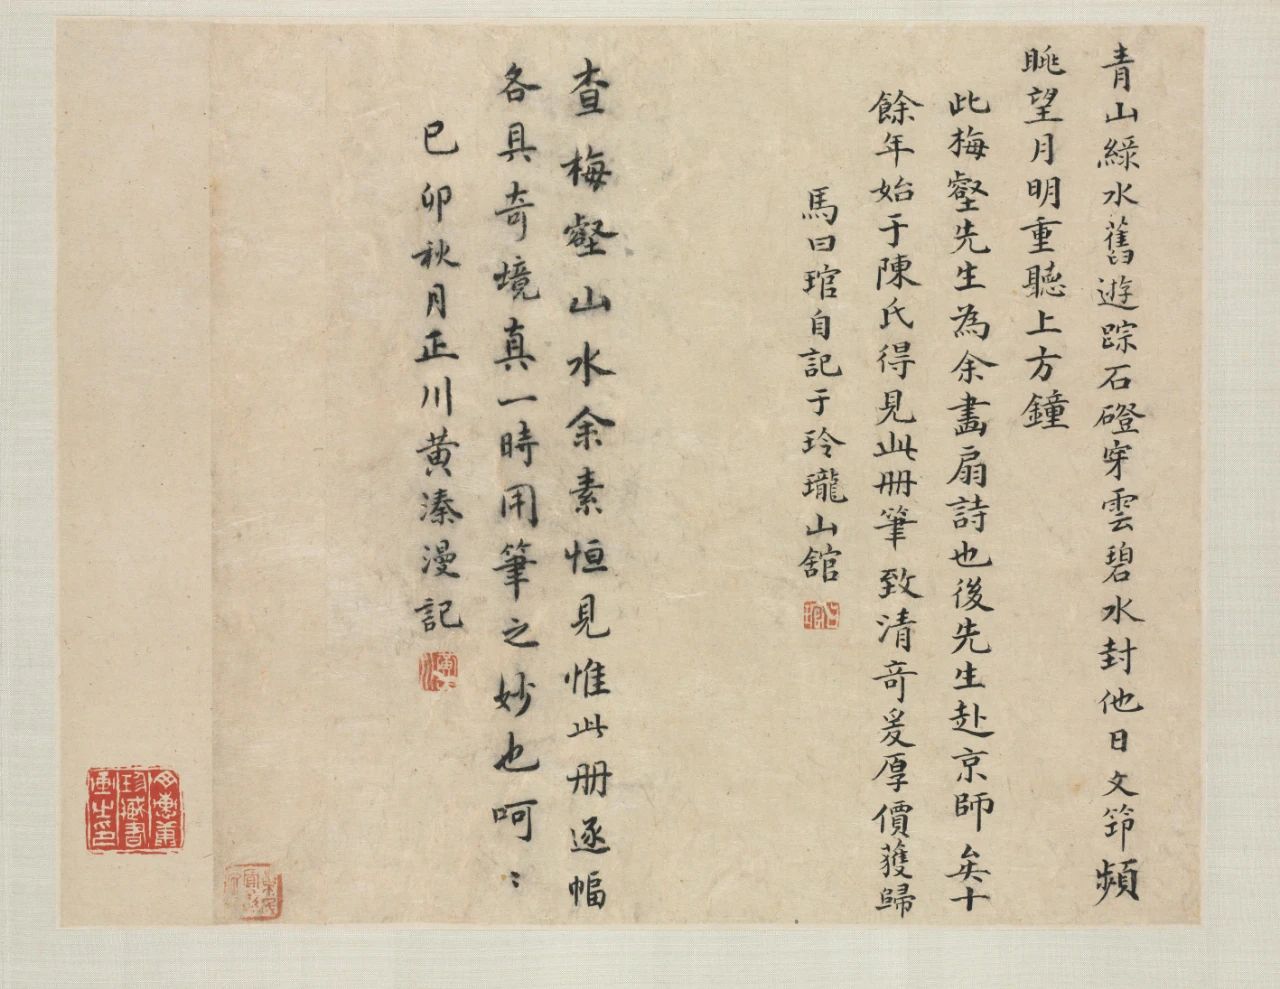 青山綠水舊遊踪石磴穿雲碧水封他日文笻頻
眺望月明重聽上方鐘
此梅壑先生為余畫扇詩也後先生赴京師矣十
餘年始于陳氏得見此冊筆致清竒爰厚價獲歸
馬曰琯自記于玲瓏山舘
曰琯
查梅壑山水余素恒見惟此冊逐幅
各具奇境真一時用筆之妙也呵：
己卯秋月正川黄溱漫記